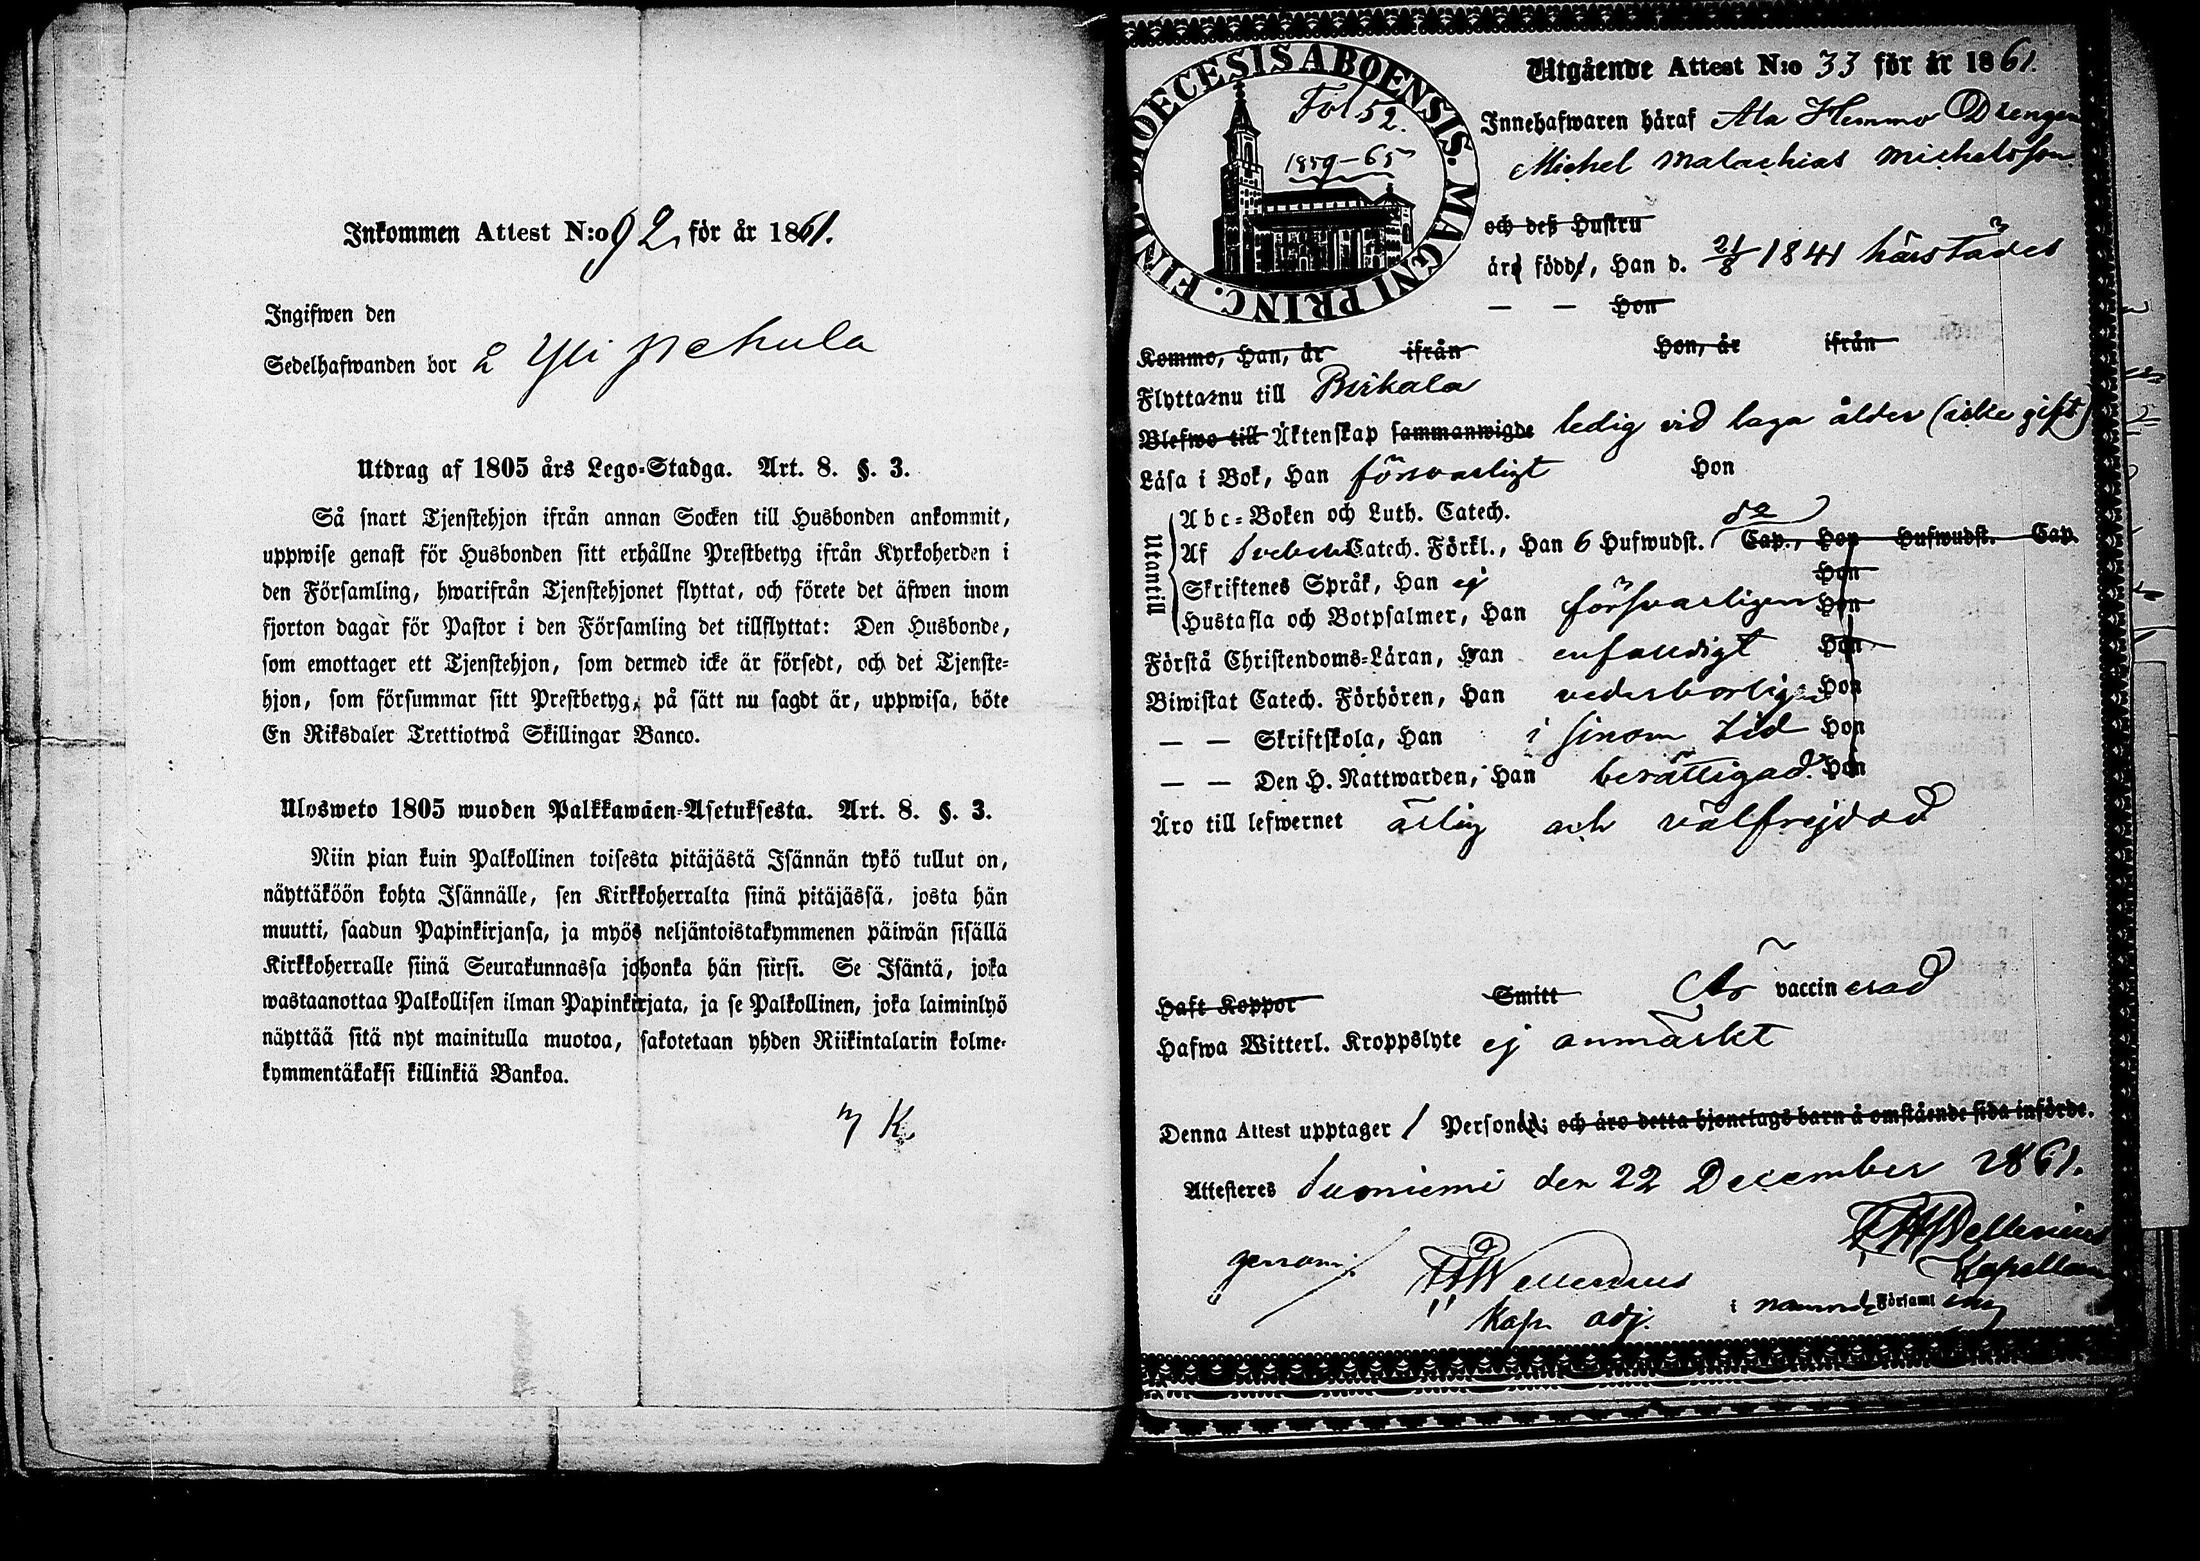 Inkommen Attest N:o 92 för år 1861.
Ingifwen den
Sedelhafwanden bor å Yli pehula
Utdrag af 1805 års Lego-Stadga. Art. 8. §. 3.
Så snart Tjenstehjon ifrån annan Socken till Husbonden ankommit,
uppwise genast för Husbonden sitt erhållne Prestbetyg ifrån Kyrkoherden i
den Församling, hwarifrån Tjenstehjonet flyttat, och förete det äfwen inom
fjorton dagar för Pastor i den Församling det tillflyttat: Den Husbonde,
som emottager ett Tjenstehjon, som dermed icke är försedt, och det Tjenste-
hjon, som försummar sitt Prestbetyg, på sätt nu sagdt är, uppwisa, böte
En Riksdaler Trettiotwå Skillingar Banco.
Ulosweto 1805 wuoden Palkkawäen-Asetuksesta. Art. 8. §. 3.
Niin pian kuin Palkollinen toisesta pitäjästä Isännän tykö tullut on,
näyttäköön kohta Isännälle, sen Kirkkoherralta siinä pitäjässä, josta hän
muutti, saadun Papinkirjansa, ja myös neljäntoistakymmenen päiwän sisällä
Kirkkoherralle siinä Seurakunnassa johonka hän siirsi. Se Isäntä, joka
wastaanottaa Palkollisen ilman Papinkirjata, ja se Palkollinen, joka laiminlyö
näyttää sitä nyt mainitulla muotoa, sakotetaan yhden Riikintalarin kolme-
kymmentäkaksi killinkiä Bankoa.
DIOECESIS ABOENSIS. MAGNI PRINC. FINL.
Fol 52.
1859-65
Utgående Attest N:o 33 för år 1861.
Innehafwaren häraf Ala Hemmo Drengen
Michel Malachias Michelsson
och deß Hustru
äro född, Han d. 21/8 1841 härstädes
— — Hon
Kommo, Han, år ifrån Hon, år ifrån
Flytta nu till Birkala
Blefwo till Äktenskap sammanwigde ledig vid laga ålder (icke gift)
Läsa i Bok, Han försvarligt Hon
Utantill
Abc-Boken och Luth. Catech.
Af Svebel Catech. Förkl., Han 6 Hufwudst. Cap., Hon Hufwudst. Cap.
Skriftenes Språk, Han ej Hon
Hustafla och Botpsalmer, Han försvarligen Hon
Förstå Christendoms-Läran, Han enfaldigt Hon
Biwistat Catech. Förhören, Han vederborlig Hon
— — Skriftskola, Han i sinom tid Hon
— — Den H. Nattwarden, Han berättigad. Hon
Äro till lefwernet ärlig och välfrejdad
Haft Koppor Smitt Är vaccinerad
Hafwa Witterl. Kroppslyte ej anmärkt
Denna Attest upptager 1 Personer; och äro detta hjonelags barn å omstående sida införde.
Attesteres Suoniemi den 22 December 1861.
Kapellan
genom
Kap. adj.
i nämnde Församling